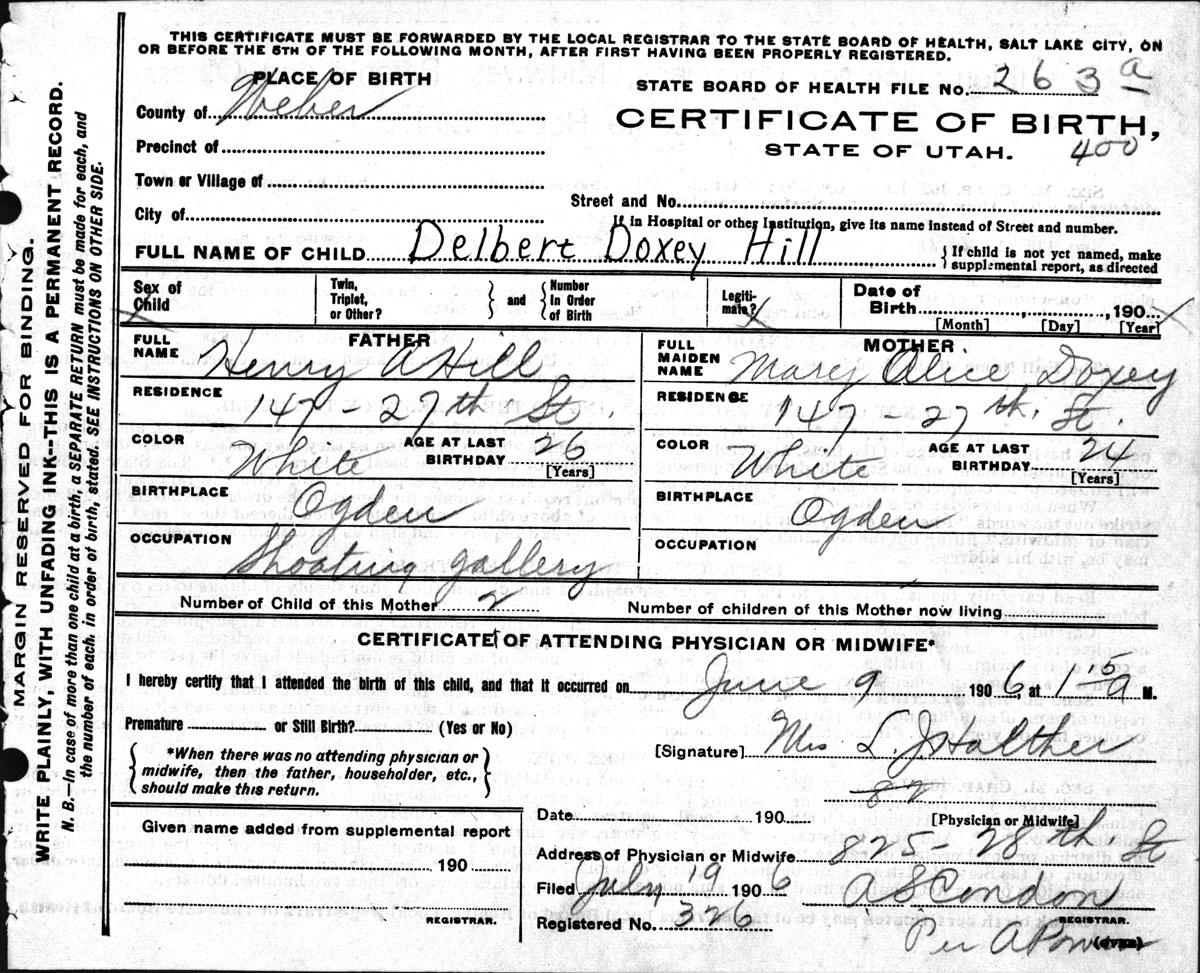 THIS CERTIFICATE MUST BE FORWARDED BY THE LOCAL REGISTRAR TO THE STATE BOARD OF HEALTH, SALT LAKE CITY, ON
OR BEFORE THE 5TH OF THE FOLLOWING MONTH, AFTER FIRST HAVING BEEN PROPERLY REGISTERED.
PLACE OF BIRTH
County of Weber
Precinct of
Town or Village of
City of
STATE BOARD OF HEALTH FILE No. 263 a
CERTIFICATE OF BIRTH,
STATE OF UTAH. 400
Street and No.
If in Hospital or other Institution, give its name instead of Street and number.
FULL NAME OF CHILD Delbert Doxey Hill { If child is not yet named, make
supplemental report, as directed
Sex of
Child
Twin,
Triplet,
or Other?
} and {
Number
In Order
of Birth
Legiti-
mate?
Date of
Birth , 190
[Month] [Day] [Year]
FATHER
FULL
NAME Henry A Hill
RESIDENCE
147 - 27th St.
COLOR White AGE AT LAST
BIRTHDAY 26
[Years]
BIRTHPLACE
Ogden
OCCUPATION
Shooting gallery
MOTHER
FULL
MAIDEN
NAME Mary Alice Doxey
RESIDENCE
147 - 27th. St.
COLOR White AGE AT LAST
BIRTHDAY 24
[Years]
BIRTHPLACE
Ogden
OCCUPATION
Number of Child of this Mother 2 Number of children of this Mother now living
CERTIFICATE OF ATTENDING PHYSICIAN OR MIDWIFE*
I hereby certify that I attended the birth of this child, and that it occurred on June 9 1906 at 1 15 a M.
Premature or Still Birth? (Yes or No)
{ *When there was no attending physician or
midwife, then the father, householder, etc.,
should make this return. }
[Signature] Mrs L. J Halther
82
Date 190 [Physician or Midwife]
Address of Physician or Midwife 825 - 28th St
Filed July 19 1906 A S Condon
REGISTRAR.
Registered No. 326
Per
Given name added from supplemental report
190
REGISTRAR.
MARGIN RESERVED FOR BINDING.
WRITE PLAINLY, WITH UNFADING INK--THIS IS A PERMANENT RECORD.
N. B.--In case of more than one child at a birth, a SEPARATE RETURN must be made for each, and
the number of each, in order of birth, stated. SEE INSTRUCTIONS ON OTHER SIDE.